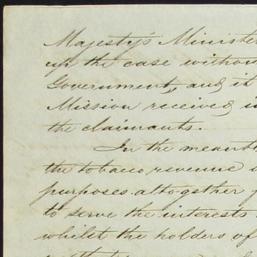 Majesty's Ministe
up the case withou
Government, and it
Mission received i
the claimants.
In the meant
the tobacco revenue
purposes altogether
to serve the interests
whilst the holders of